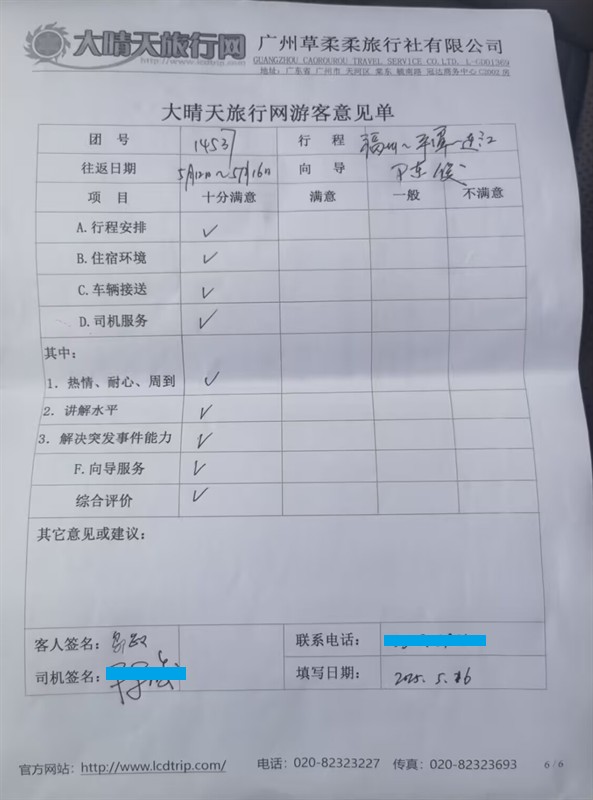 大晴天旅行网 广州草柔柔旅行社有限公司
http://www.lcdtrip.com GUANGZHOU CAOROUROU TRAVEL SERVICE CO. LTD. L-GD01369
大晴天旅行网游客意见单
团 号 1453 行 程 福州~平潭-连江
往返日期 5月12日~5月16日 向 导
项 目 十分满意 满意 一般 不满意
A.行程安排 ✓
B.住宿环境 ✓
C.车辆接送 ✓
D.司机服务 ✓
其中:
1.热情、耐心、周到 ✓
2.讲解水平 ✓
3.解决突发事件能力 ✓
F.向导服务 ✓
综合评价 ✓
其它意见或建议:
客人签名: 联系电话:
司机签名: 填写日期: 2025.5.16
官方网站: http://www.lcdtrip.com/ 电话: 020-82323227 传真: 020-82323693 6/6